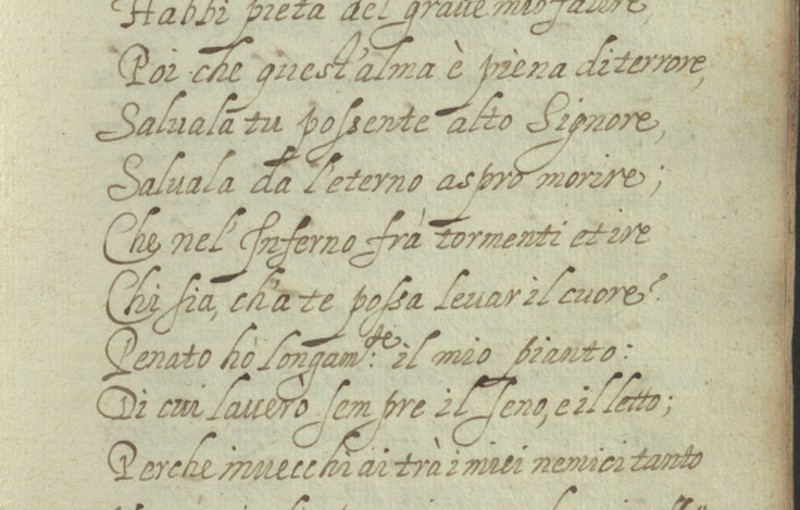 Habbi pietà del graue mio fallire,
Poi che quest'alma è pièna di terrore,
Saluala tu possente alto Signore,
Saluala da l'eterno aspro morire;
Che nel' Inferno frà tormenti et ire
Chi sia, ch'a te possa leuar il cuore?
Penato hò longam:te il mio pianto:
Di cui lauerò sempre il seno, e il letto;
Perche inuecchiai trà i miei nemici tanto